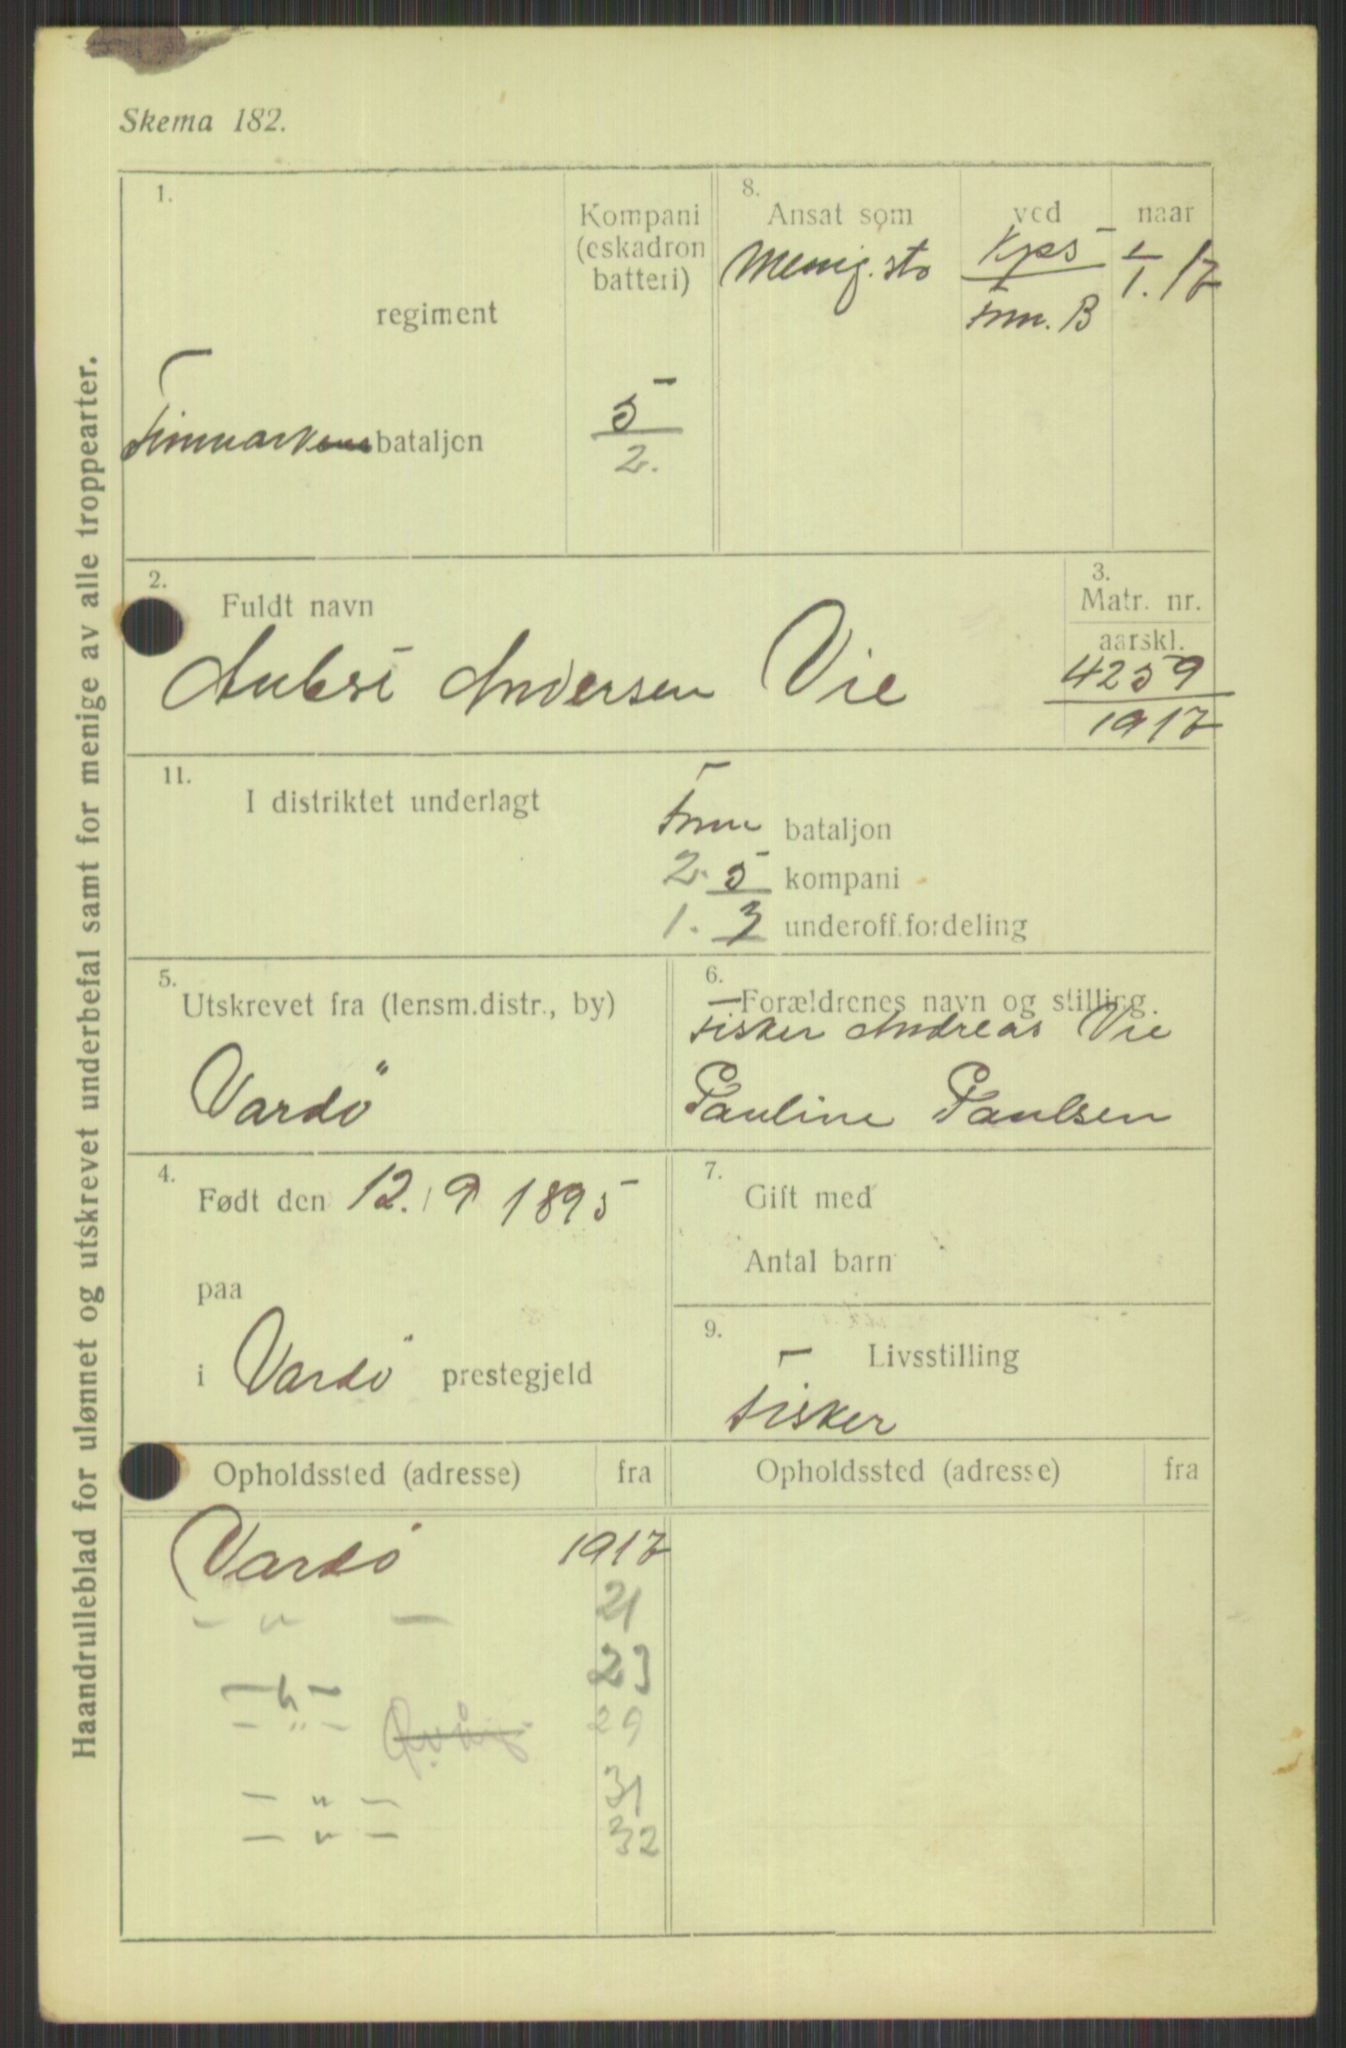 Skema 182.
Haandrulleblad for ulønnet og utskrevet underbefal samt for menige av alle troppearter.
1.
regiment
Finmarkens bataljon
Kompani (eskadron batteri)
5
2.
8.
Ansat som
ved
naar
Menig. sto
Kps
Finm. B
1/1. 17
2.
Fuldt navn
Andersen Vie
3.
Matr. nr.
aarskl.
4259
1917
11.
I distriktet underlagt
Finm bataljon
2. 5 kompani
1. 3 underoff.fordeling
5.
Utskrevet fra (lensm.distr., by)
Vardö
6.
Forældrenes navn og stilling.
Fisker Andreas Vie
Pauline Paulsen
4.
Født den 12. / 9 1895
paa
i Vardö prestegjeld
7.
Gift med
Antal barn
9.
Livsstilling
Fisker
Opholdssted (adresse) fra
Opholdssted (adresse) fra
Vardö 1917
— " — 21
— " — 23
— " — 29
— " — 31
— " — 32